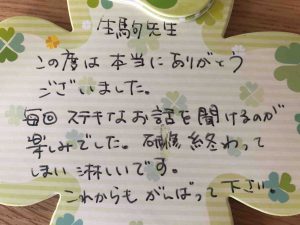 生駒先生
この度は本当にありがとう
ございました。
毎回ステキなお話を聞けるのが
楽しみでした。研修終わって
しまい淋しいです。
これからもがんばって下さい。